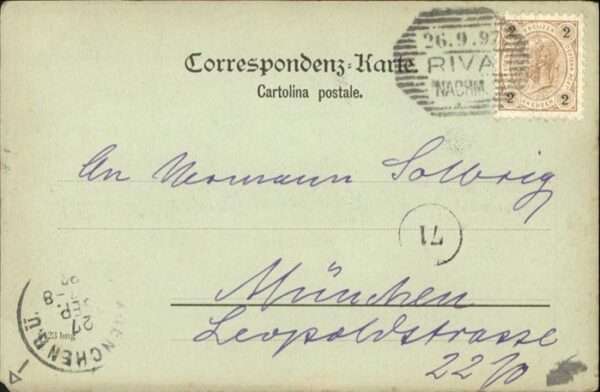 Correspondenz-Karte.
Cartolina postale.
26.9.97
RIVA
NACHM.
2 2
2 2
An Hermann Solbrig
71
München
Leopoldstrasse
22/0
MUENCHEN B.Ü.
27
SEP.
7-8